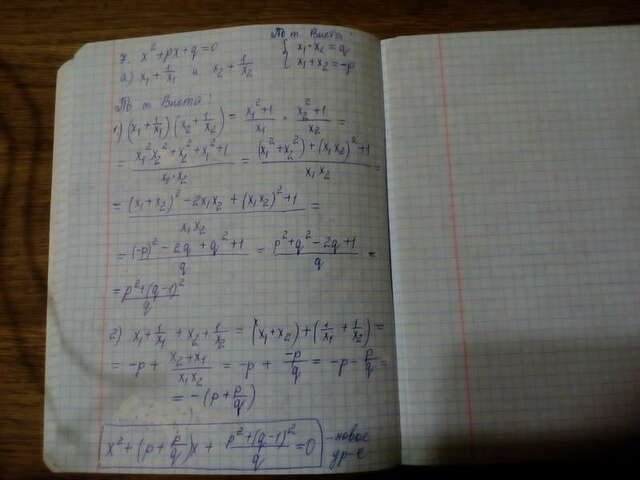 7. x² + px + q = 0
а) x₁ + 1/x₁ и x₂ + 1/x₂
По т. Виета:
{ x₁·x₂ = q
x₁ + x₂ = -p
По т. Виета:
1) (x₁ + 1/x₁)(x₂ + 1/x₂) = (x₁² + 1)/x₁ · (x₂² + 1)/x₂ =
= (x₁²x₂² + x₂² + x₁² + 1)/(x₁·x₂) = ((x₁² + x₂²) + (x₁x₂)² + 1)/(x₁x₂) =
= ((x₁ + x₂)² - 2x₁x₂ + (x₁x₂)² + 1)/(x₁x₂) =
= ((-p)² - 2q + q² + 1)/q = (p² + q² - 2q + 1)/q =
= (p² + (q-1)²)/q
2) x₁ + 1/x₁ + x₂ + 1/x₂ = (x₁ + x₂) + (1/x₁ + 1/x₂) =
= -p + (x₂ + x₁)/(x₁x₂) = -p + (-p)/q = -p - p/q =
= -(p + p/q)
x² + (p + p/q)x + (p² + (q-1)²)/q = 0 - новое
ур-е